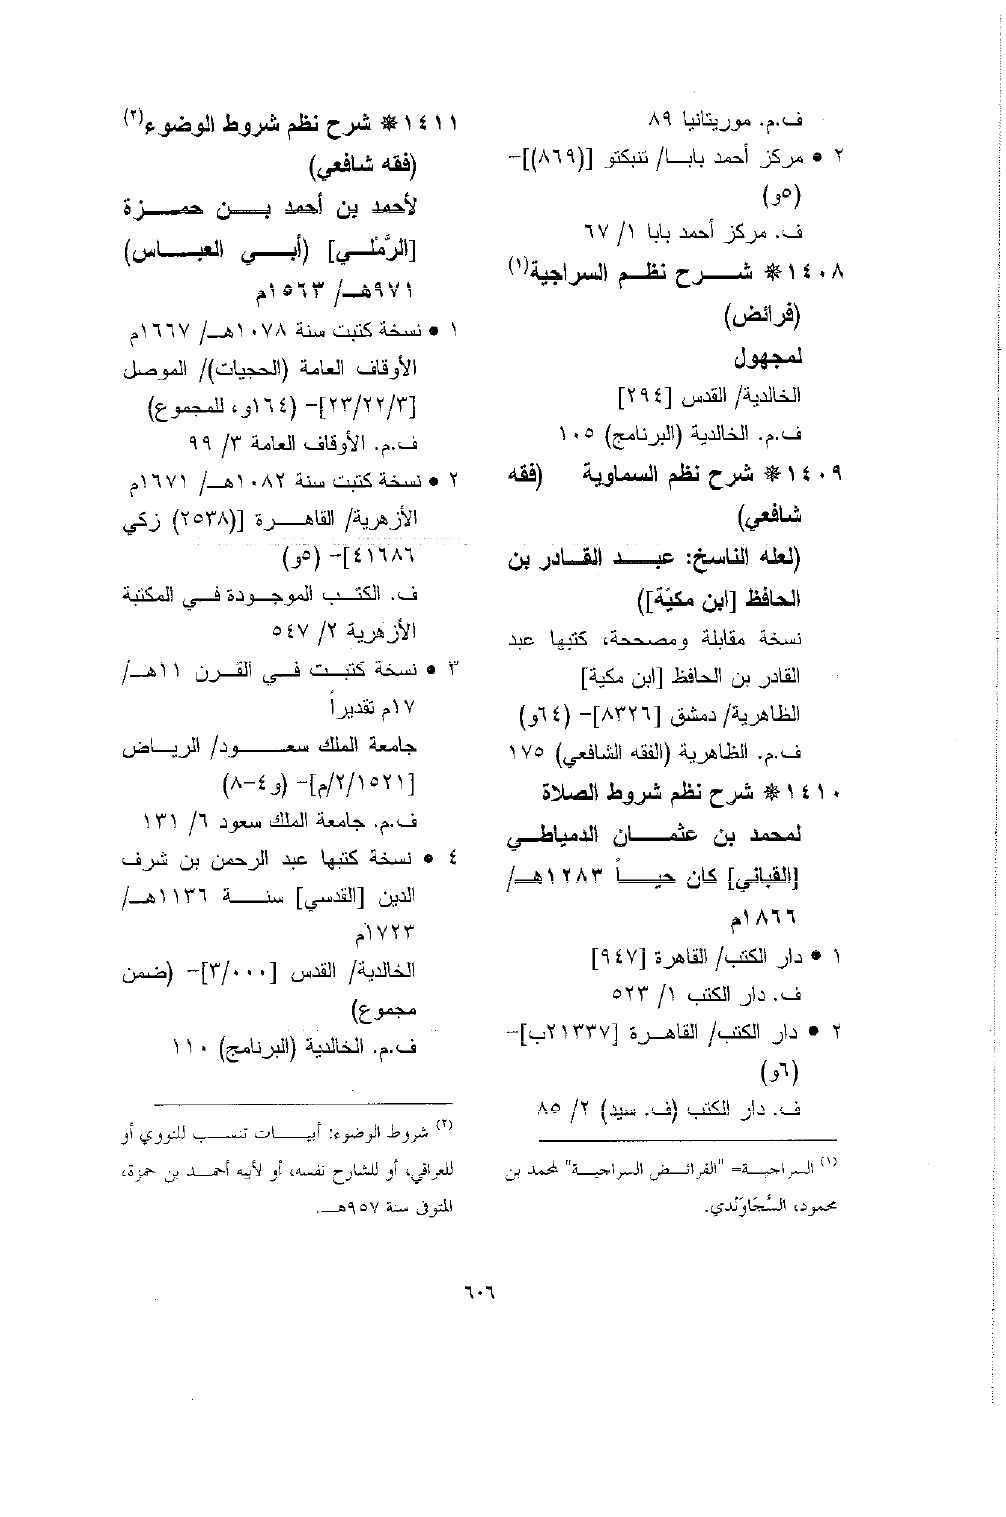 ف.م. موريتانيا ٨٩
٢ • مركز أحمد بابا/ تنبكتو [(٨٦٩)]-
(٥و)
ف. مركز أحمد بابا ١/ ٦٧
١٤٠٨* شرح نظم السراجية(١)
(فرائض)
لمجهول
الخالدية/ القدس [٢٩٤]
ف.م. الخالدية (البرنامج) ١٠٥
١٤٠٩* شرح نظم السماوية (فقه
شافعي)
(لعله الناسخ: عبد القادر بن
الحافظ [ابن مكيّة])
نسخة مقابلة ومصححة، كتبها عبد
القادر بن الحافظ [ابن مكية]
الظاهرية/ دمشق [٨٣٢٦]- (٦٤و)
ف.م. الظاهرية (الفقه الشافعي) ١٧٥
١٤١٠* شرح نظم شروط الصلاة
لمحمد بن عثمان الدمياطي
[القباني] كان حياً ١٢٨٣هـ/
١٨٦٦م
١ • دار الكتب/ القاهرة [٩٤٧]
ف. دار الكتب ١/ ٥٢٣
٢ • دار الكتب/ القاهرة [٢١٣٣٧ب]-
(٦و)
ف. دار الكتب (ف. سيد) ٢/ ٨٥
(١) السراجية= "الفرائض السراجية" لمحمد بن
محمود، السَّجَاوَنْدي.
١٤١١* شرح نظم شروط الوضوء(٢)
(فقه شافعي)
لأحمد بن أحمد بن حمزة
[الرَّمْلي] (أبي العباس)
٩٧١هـ/ ١٥٦٣م
١ • نسخة كتبت سنة ١٠٧٨هـ/ ١٦٦٧م
الأوقاف العامة (الحجيات)/ الموصل
[٢٣/٢٢/٣]- (١٦٤و، للمجموع)
ف.م. الأوقاف العامة ٣/ ٩٩
٢ • نسخة كتبت سنة ١٠٨٢هـ/ ١٦٧١م
الأزهرية/ القاهرة [(٢٥٣٨) زكي
٤١٦٨٦]- (٥و)
ف. الكتب الموجودة في المكتبة
الأزهرية ٢/ ٥٤٧
٣ • نسخة كتبت في القرن ١١هـ/
١٧م تقديراً
جامعة الملك سعود/ الرياض
[١٥٢١/٢/م]- (و٤-٨)
ف.م. جامعة الملك سعود ٦/ ١٣١
٤ • نسخة كتبها عبد الرحمن بن شرف
الدين [القدسي] سنة ١١٣٦هـ/
١٧٢٣م
الخالدية/ القدس [٣/٠٠٠]- (ضمن
مجموع)
ف.م. الخالدية (البرنامج) ١١٠
(٢) شروط الوضوء: أبيات تنسب للنووي أو
للعراقي، أو للشارح نفسه، أو لأبيه أحمد بن حمزة،
المتوفى سنة ٩٥٧هـ.
٦٠٦